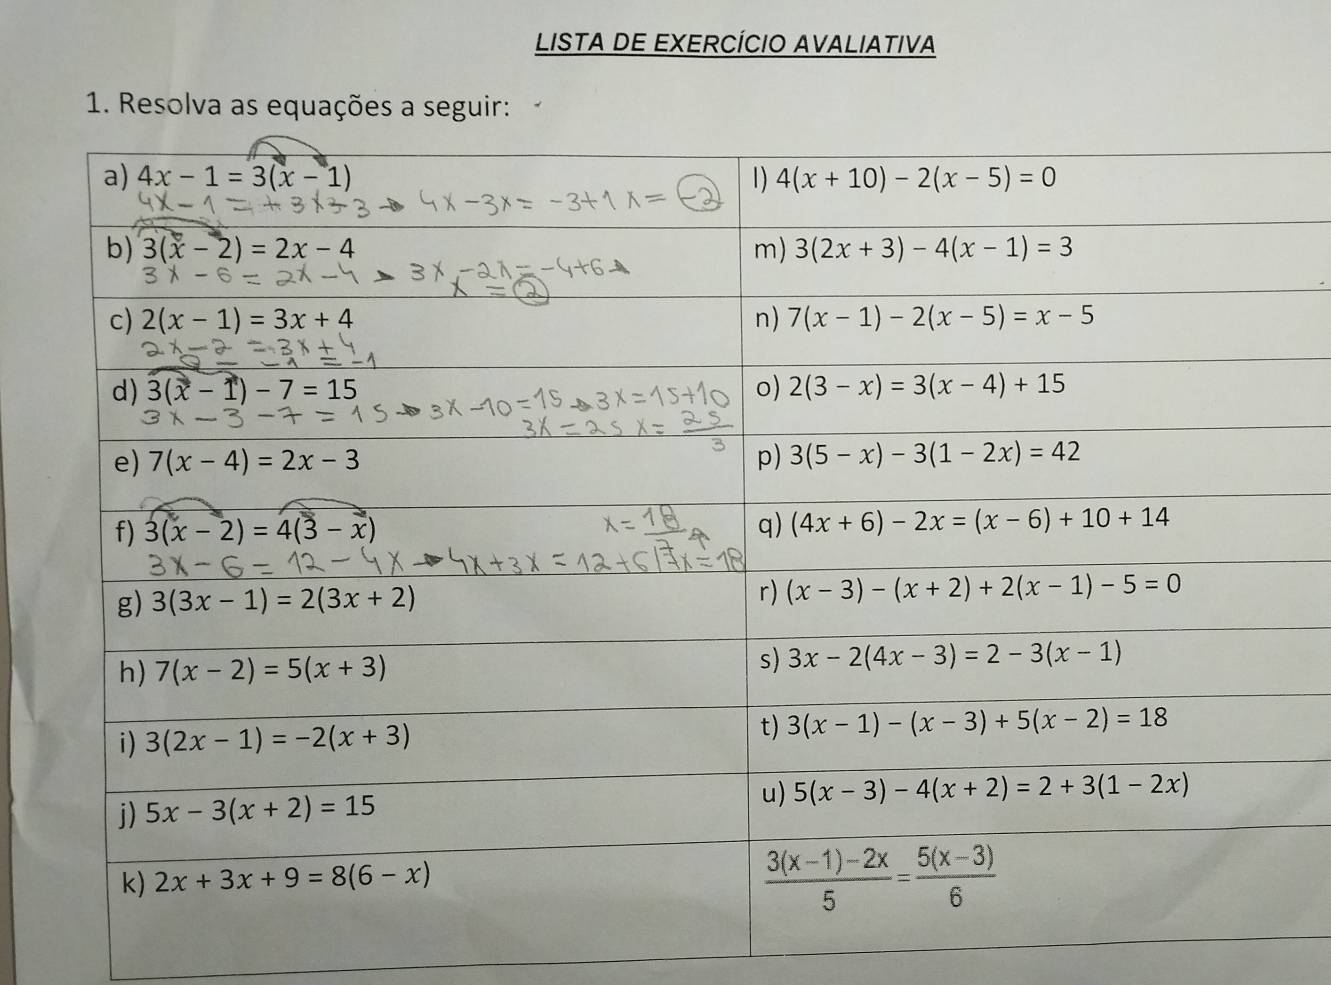 LISTA DE EXERCÍCIO AVALIATIVA
1. Resolva as equações a seguir:
a) 4x − 1 = 3(x − 1)
4x − 1 = + 3x − 3 → 4x − 3x = −3 + 1 x = −2
b) 3(x − 2) = 2x − 4
3x − 6 = 2x − 4 → 3x − 2x = −4 + 6 →
x = 2
c) 2(x − 1) = 3x + 4
2x − 2 = 3x + 4
d) 3(x − 1) − 7 = 15
3x − 3 − 7 = 15 → 3x − 10 = 15 → 3x = 15 + 10
3x = 25 x = 25/3
e) 7(x − 4) = 2x − 3
f) 3(x − 2) = 4(3 − x)
x = 18/7
3x − 6 = 12 − 4x → 4x + 3x = 12 + 6 | 7x = 18
g) 3(3x − 1) = 2(3x + 2)
h) 7(x − 2) = 5(x + 3)
i) 3(2x − 1) = −2(x + 3)
j) 5x − 3(x + 2) = 15
k) 2x + 3x + 9 = 8(6 − x)
l) 4(x + 10) − 2(x − 5) = 0
m) 3(2x + 3) − 4(x − 1) = 3
n) 7(x − 1) − 2(x − 5) = x − 5
o) 2(3 − x) = 3(x − 4) + 15
p) 3(5 − x) − 3(1 − 2x) = 42
q) (4x + 6) − 2x = (x − 6) + 10 + 14
r) (x − 3) − (x + 2) + 2(x − 1) − 5 = 0
s) 3x − 2(4x − 3) = 2 − 3(x − 1)
t) 3(x − 1) − (x − 3) + 5(x − 2) = 18
u) 5(x − 3) − 4(x + 2) = 2 + 3(1 − 2x)
3(x − 1) − 2x / 5 = 5(x − 3) / 6